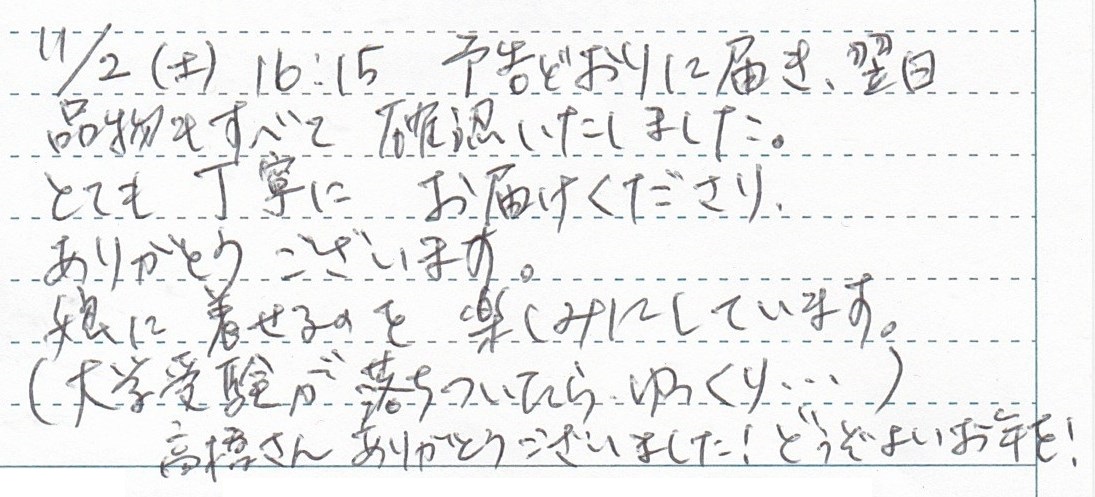 11/2(土) 16:15 予告どおりに届き、翌日
品物もすべて 確認いたしました。
とても 丁寧に お届けくださり、
ありがとう ございます。
娘に 着せるのを 楽しみにしています。
(大学受験が 落ちついたら ゆっくり…)
高橋さん ありがとうございました!どうぞよいお年を!